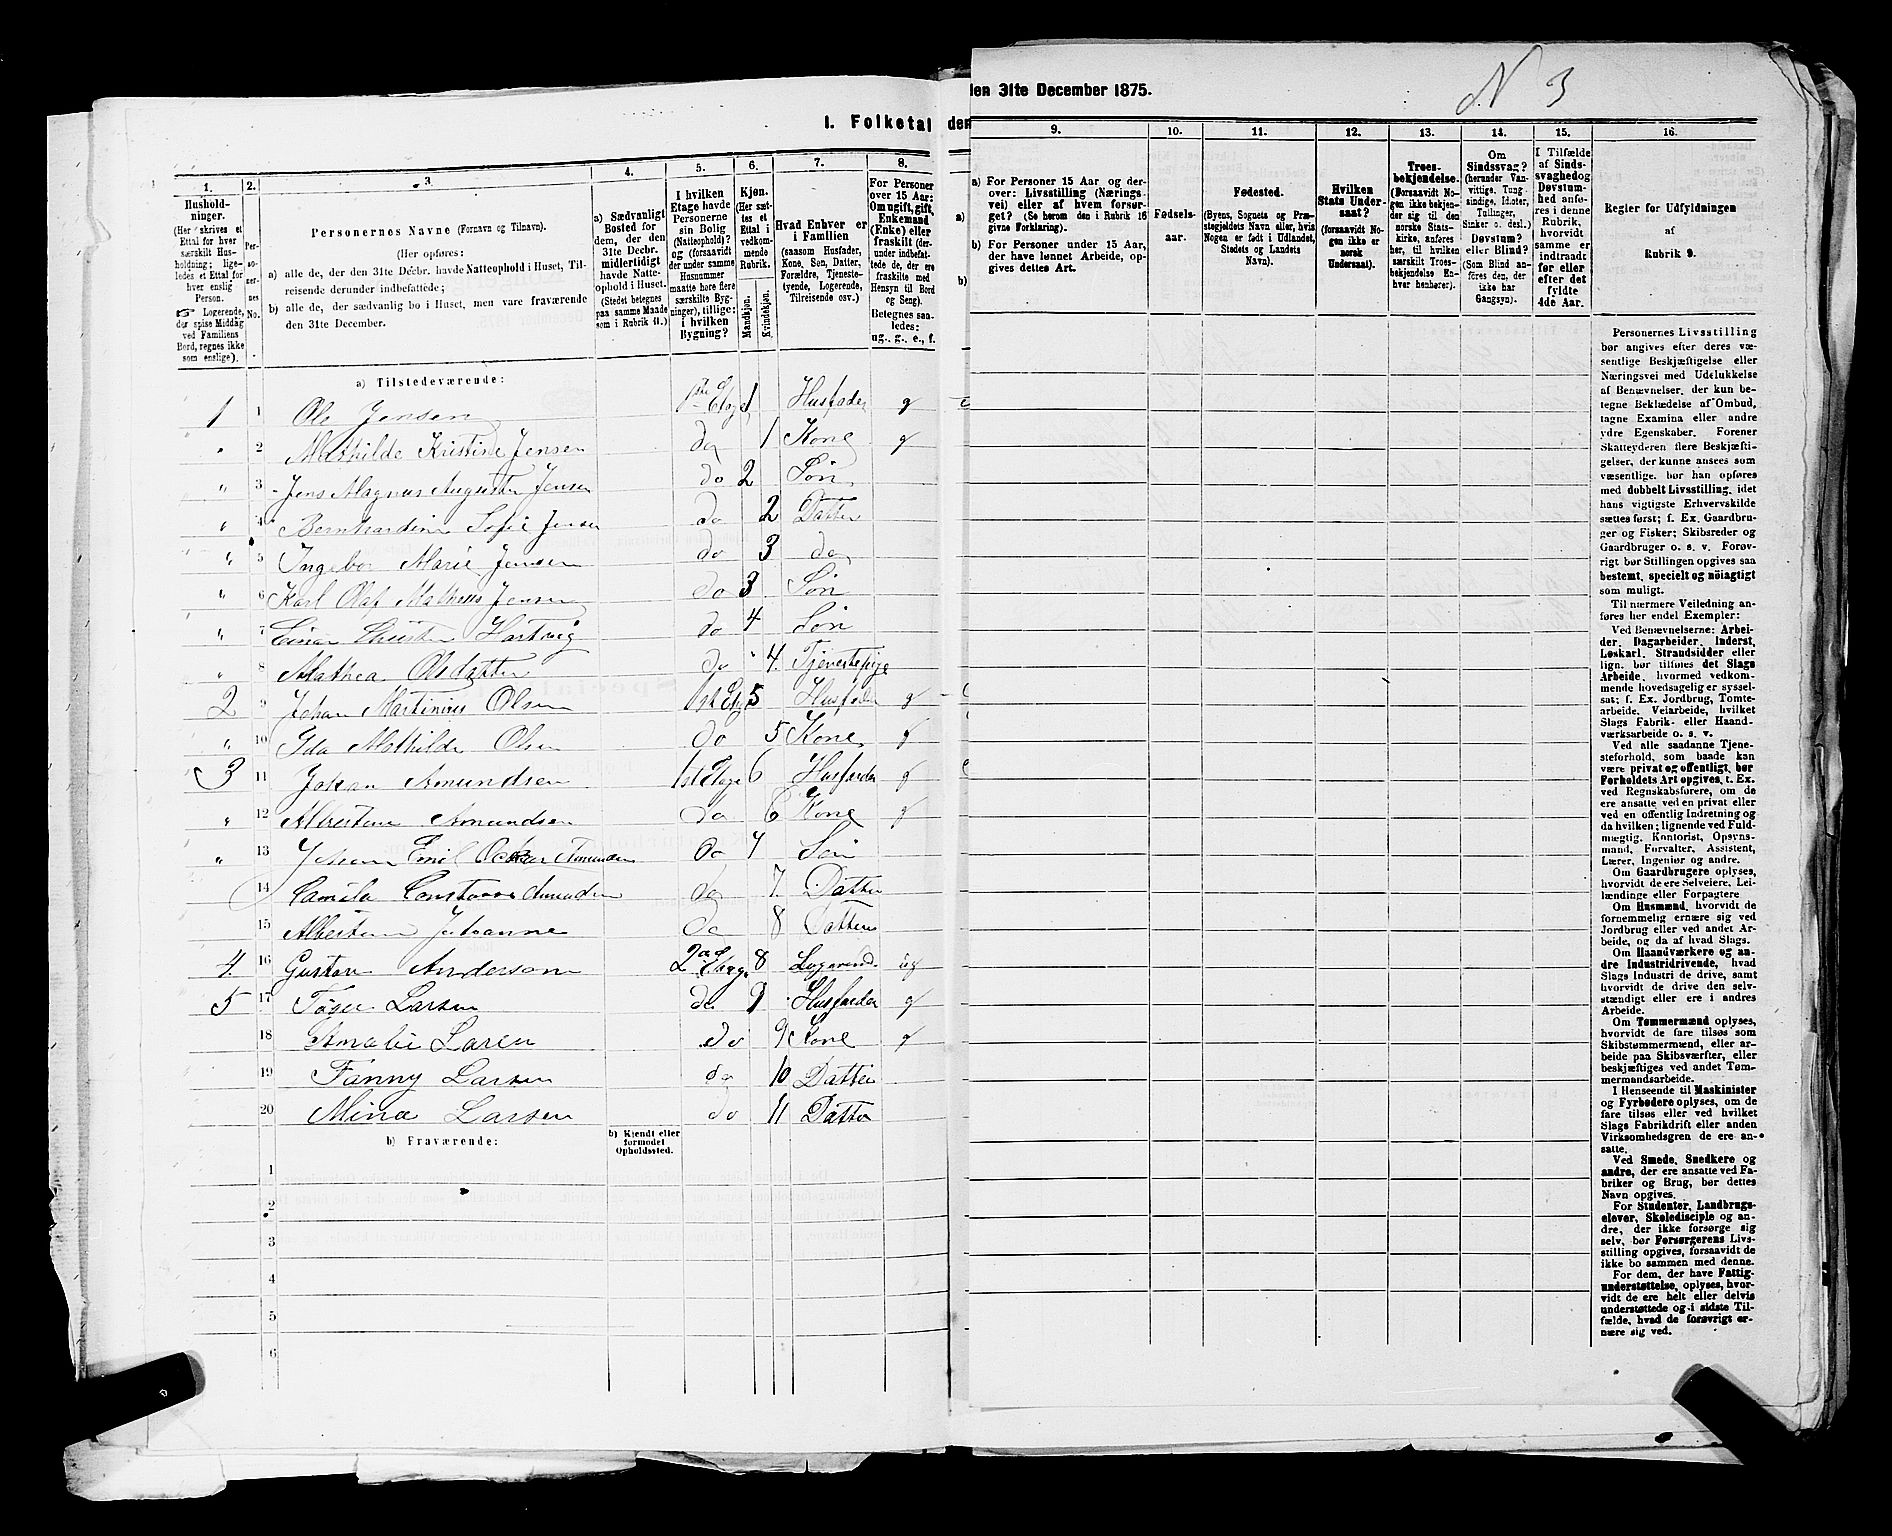 N 3
den 31te December 1875.
I. Folketal den
1. 2. 3. 4. 5. 6. 7. 8.
Hushold-
ninger.
(Her skrives et
Ettal for hver
særskilt Hus-
holdning; lige-
ledes et Ettal for
hver enslig
Person.
☞ Logerende,
der spise Middag
ved Familiens
Bord, regnes ikke
som enslige).
Per-
so-
ner-
nes
No.
Personernes Navne (Fornavn og Tilnavn).
(Her opføres:
a) alle de, der den 31te Decbr. havde Natteophold i Huset, Til-
reisende derunder indbefattede;
b) alle de, der sædvanlig bo i Huset, men vare fraværende
den 31te December.
a) Sædvanligt
Bosted for
dem, der den
31te Decbr.
midlertidigt
havde Natte-
ophold i Huset.
(Stedet betegnes
paa samme Maade
som i Rubrik 11.)
I hvilken
Etage havde
Personerne
sin Bolig
(Natteophold)?
og (forsaavidt
der under samme
Husnummer
maatte høre flere
særskilte Byg-
ninger), tillige:
i hvilken
Bygning?
Kjøn.
(Her sæt-
tes et
Ettal i
vedkom-
mende
Rubrik.
Mandkjøn.
Kvindekjøn.
Hvad Enhver er
i Familien
(saasom Husfader,
Kone, Søn, Datter,
Forældre, Tjeneste-
tyende, Logerende,
Tilreisende osv.)
For Personer
over 15 Aar:
Om ugift, gift,
Enkemand
(Enke) eller
fraskilt (der-
under indbefat-
tede de, der ere
fraskilte med
Hensyn til Bord
og Seng).
Betegnes saa-
ledes:
ug., g., e., f.
a) Tilstedeværende:
1 1 Ole Jensen 1ste Etage 1 Husfader g
" 2 Mathilde Kristine Jensen do 1 Kone g
" 3 Jens Magnus August Jensen do 2 Søn
" 4 Bernhardine Sofie Jensen do 2 Datter
" 5 Ingebor Marie Jensen do 3 do
" 6 Karl Olaf Mathess Jensen do 3 Søn
" 7 Einar Hartvig do 4 Søn
" 8 Mathea Olsdatter do 4. Tjenestepige
2 9 Johan Martinius Olsen 1st Etg 5 Husfader g
" 10 Ida Mathilde Olsen do 5 Kone g
3 11 Johan Amundsen 1st Etage 6 Husfader g
" 12 Albertine Amundsen do 6 Kone g
" 13 Johan Emil Oskar Amundsen do 7 Søn
14 Camila Constance Amundsen do 7. Datter
15 Albertine Johanne do 8 Datter
4. 16 Gustav Anderson 2ad Etage 8 Logerend. ug
5 17 Larsen do 9 Husfader g
18 Amalie Larsen do 9 Kone g
19 Fanny Larsen do 10 Datter
20 Mina Larsen do 11 Datter
b) Fraværende:
b) Kjendt eller
formodet
Opholdssted.
1
2
3
4
5
6
9. 10. 11. 12. 13. 14. 15. 16.
a) For Personer 15 Aar og der-
over: Livsstilling (Nærings-
vei) eller af hvem forsør-
get? (Se herom den i Rubrik 16
givne Forklaring).
b) For Personer under 15 Aar,
der have lønnet Arbeide, op-
gives dettes Art.
Fødsels-
aar.
Fødested.
(Byens, Sognets og Præ-
stegjeldets Navn eller, hvis
Nogen er født i Udlandet,
Stedets og Landets
Navn).
Hvilken
Stats Under-
saat?
(forsaavidt No-
gen ikke er
norsk
Undersaat).
Troes-
bekjendelse.
(Forsaavidt No-
gen ikke bekjen-
der sig til den
norske Stats-
kirke, anføres
her, til hvilken
særskilt Troes-
bekjendelse En-
hver henhører).
Om
Sindssvag?
(herunder Van-
vittige, Tung
sindige, Idioter,
Tullinger,
Sinker o. desl.)
Døvstum?
eller Blind?
(Som Blind an-
føres den, der
ikke har
Gangsyn).
I Tilfælde
af Sinds-
svaghed og
Døvstum-
hed anfø-
res i denne
Rubrik,
hvorvidt
samme er
indtraadt
før eller
efter det
fyldte
4de Aar.
Regler for Udfyldningen
af
Rubrik 9.
Personernes Livsstilling
bør angives efter deres væ-
sentlige Beskjæftigelse eller
Næringsvei med Udelukkelse
af Benævnelser, der kun be-
tegne Beklædelse af Ombud,
tagne Examina eller andre
ydre Egenskaber. Forener
Skatteyderen flere Beskjæfti-
gelser, der kunne ansees som
væsentlige, bør han opføres
med dobbelt Livsstilling, idet
hans vigtigste Erhvervskilde
sættes først; f. Ex. Gaardbru-
ger og Fisker; Skibsreder og
Gaardbruger o. s. v. Forøv-
rigt bør Stillingen opgives saa
bestemt, specielt og nöiagtigt
som muligt.
Til nærmere Veiledning an-
føres her endel Exempler:
Ved Benævnelserne: Arbei-
der, Dagarbeider, Inderst,
Løskarl, Strandsidder eller
lign. bør tilføies det Slags
Arbeide, hvormed vedkom-
mende hovedsagelig er syssel-
sat; f. Ex. Jordbrug, Tomte-
arbeide, Veiarbeide, hvilket
Slags Fabrik- eller Haand-
værksarbeide o. s. v.
Ved alle saadanne Tje-
nesteforhold, som baade kan
være privat og offentligt, bør
Forholdets Art opgives, t. Ex.
ved Regnskabsførere, om de
ere ansatte ved en privat eller
ved en offentlig Indretning og
da hvilken; lignende ved Fuld-
mægtig, Kontorist, Opsyns-
mand, Forvalter, Assistent,
Lærer, Ingeniør og andre.
Om Gaardbrugere oplyses,
hvorvidt de ere Selveiere, Lei-
lændinge eller Forpagtere
Om Husmænd, hvorvidt de
fornemmelig ernære sig ved
Jordbrug eller ved andet Ar-
beide, og da af hvad Slags.
Om Haandværkere og an-
dre Industridrivende, hvad
Slags Industri de drive, samt
hvorvidt de drive den selv-
stændigt eller ere i andres
Arbeide.
Om Tømmermænd oplyses,
hvorvidt de fare tilsøs som
Skibstømmermænd, eller ar-
beide paa Skibsværfter, eller
beskjæftiges ved andet Tøm-
mermandsarbeide.
I Henseende til Maskinister
og Fyrbødere oplyses, om de
fare tilsøs eller ved hvilket
Slags Fabrikdrift eller anden
Virksomhedsgren de ere an-
satte.
Ved Smede, Snedkere og
andre, der ere ansatte ved Fa-
briker og Brug, bør dettes
Navn opgives.
For Studenter, Landbrugs-
elever, Skoledisciple og an-
dre, der ikke forsørge sig
selv, bør Forsørgerens Livs-
stilling opgives, forsaavidt de
ikke bo sammen med denne.
For dem, der have Fattig-
understøttelse, oplyses, hvor-
vidt de ere helt eller delvis
understøttede og i sidste Til-
fælde, hvad de forøvrigt er-
nære sig ved.